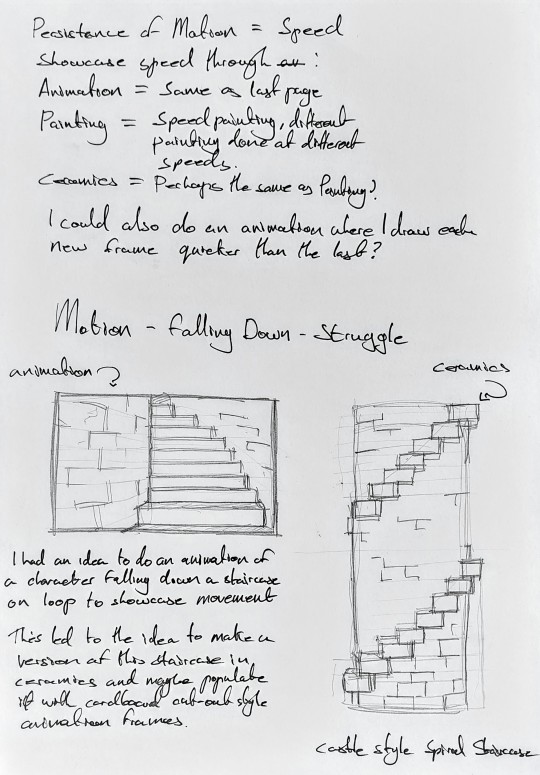 Persistence of Motion = Speed
Showcase speed through :
Animation = Same as last page
Painting = Speed painting, different
painting done at different
speeds.
Ceramics = Perhaps the same as Painting?
I could also do an animation where I draw each
new frame quicker than the last?
Motion - Falling Down - Struggle
animation?
ceramics
I had an idea to do an animation of
a character falling down a staircase
on loop to showcase movement
This led to the idea to make a
version of this staircase in
ceramics and maybe populate
it with cardboard cut-out style
animation frames.
castle style Spiral Staircase